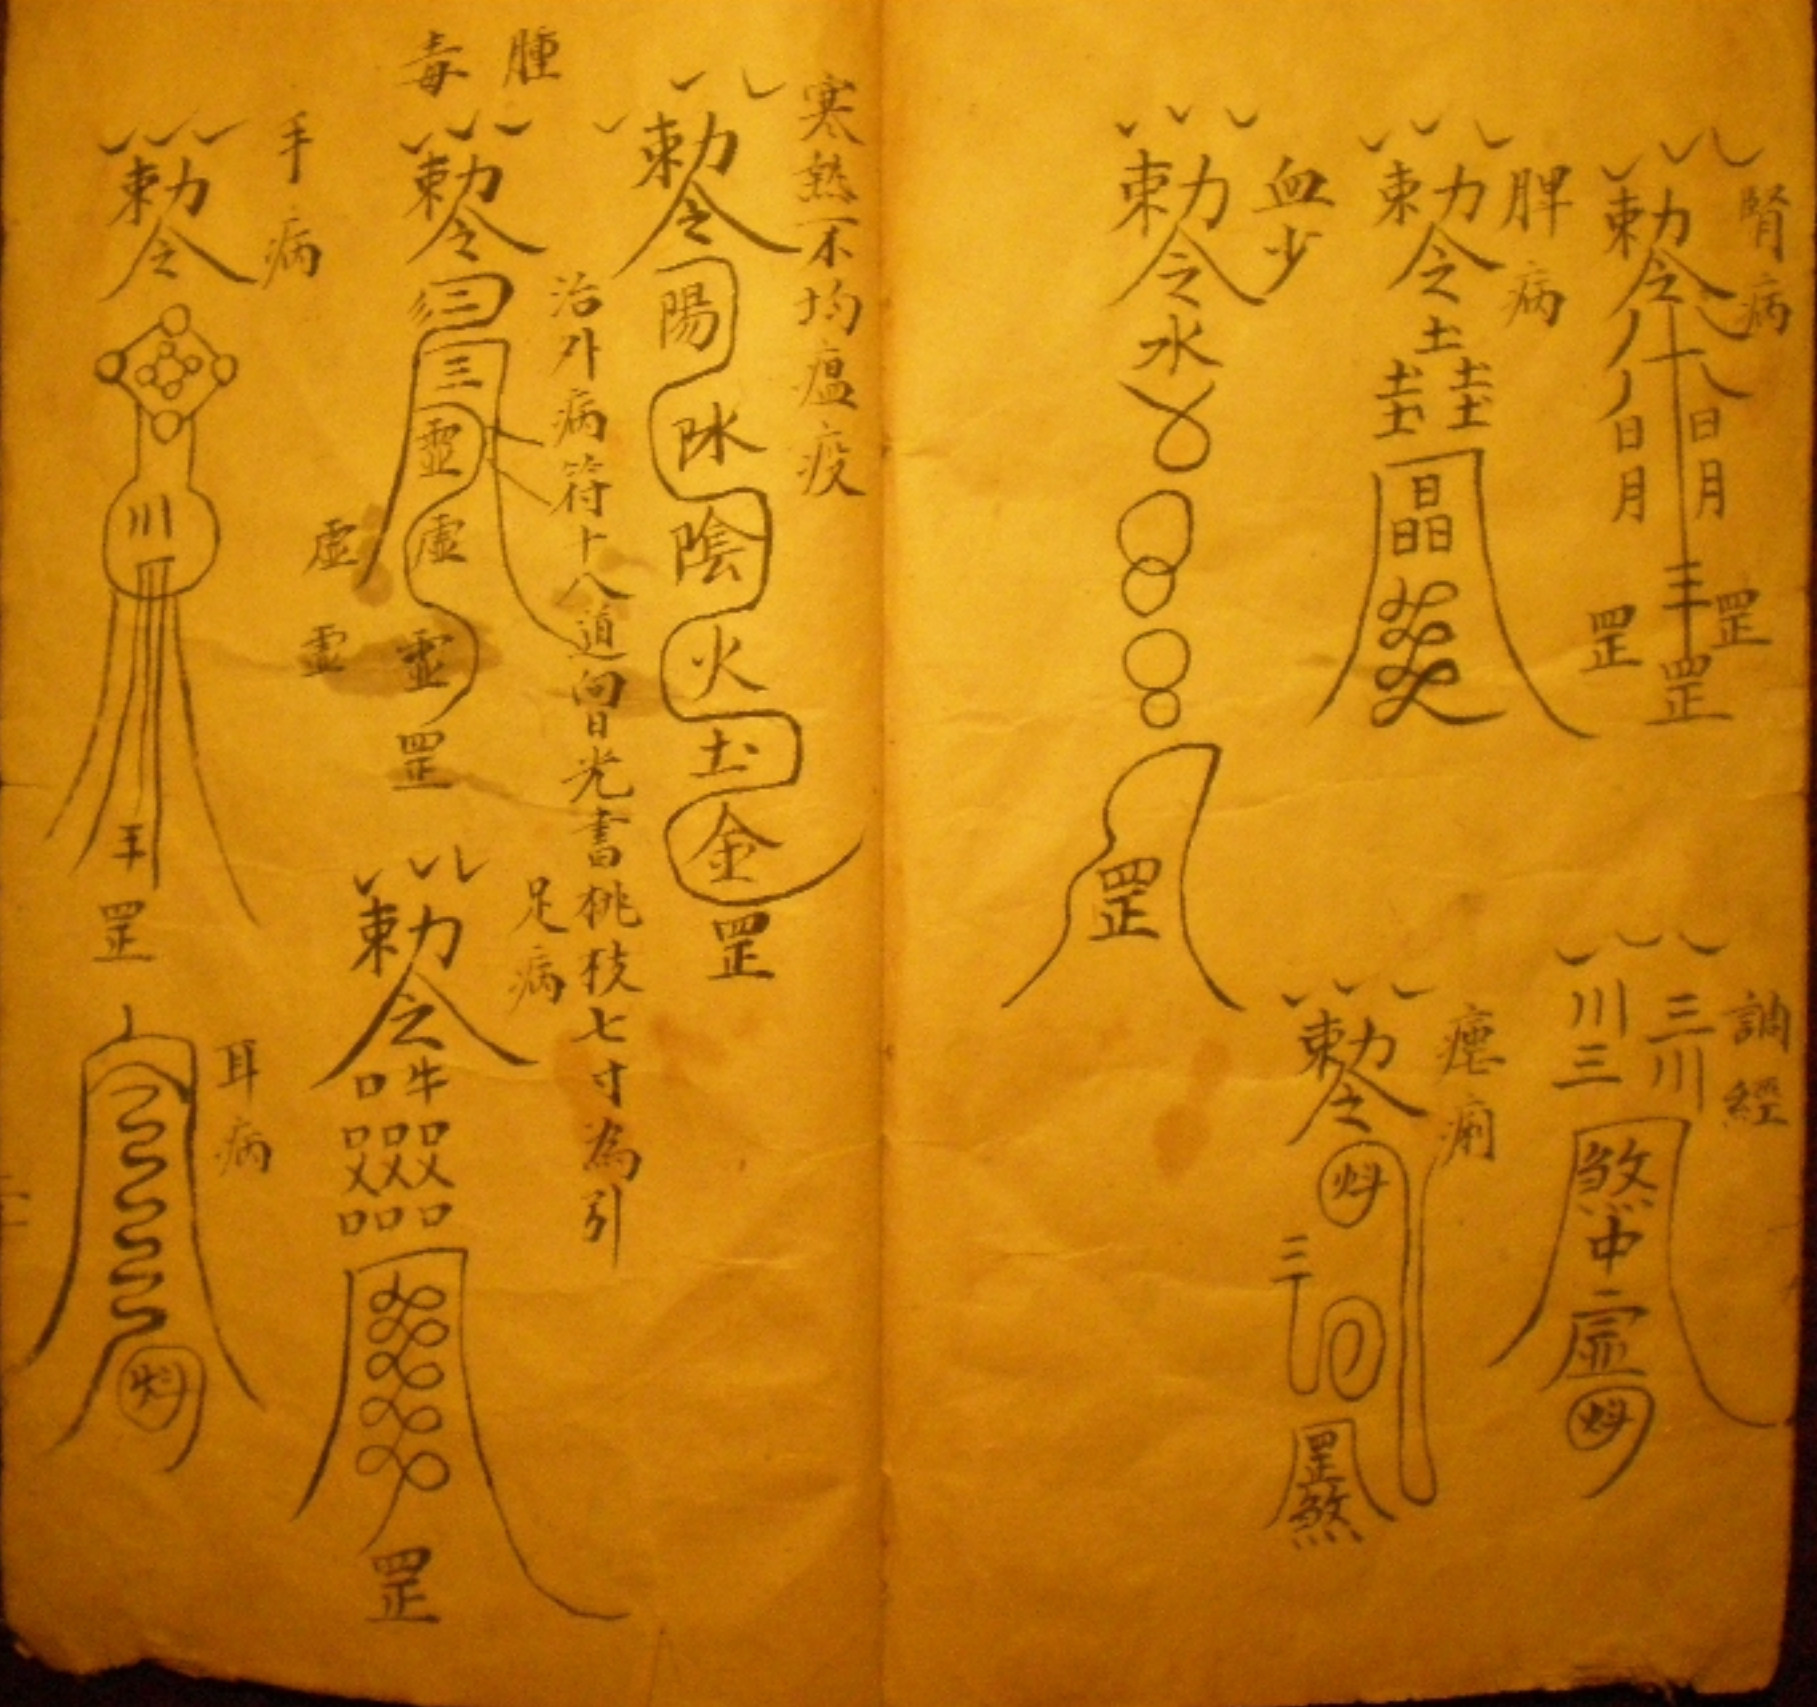 腎病
勅令
日月
日月
罡
罡
罡
脾病
勅令
土
土土
土土
晶
血少
勅令
水
罡
調經
三川
川三
煞
中
虛
勅令
三
罡
煞
寒熱不均瘟疫
勅令
陽
水
陰
火
土
金
罡
腫毒
勅令
三
三
靈
虛
靈
虛
靈
罡
治外病符十八道向日光書桃枝七寸為引
足病
勅令
口牛
口口口
口口口
罡
手病
勅令
川
罡
耳病